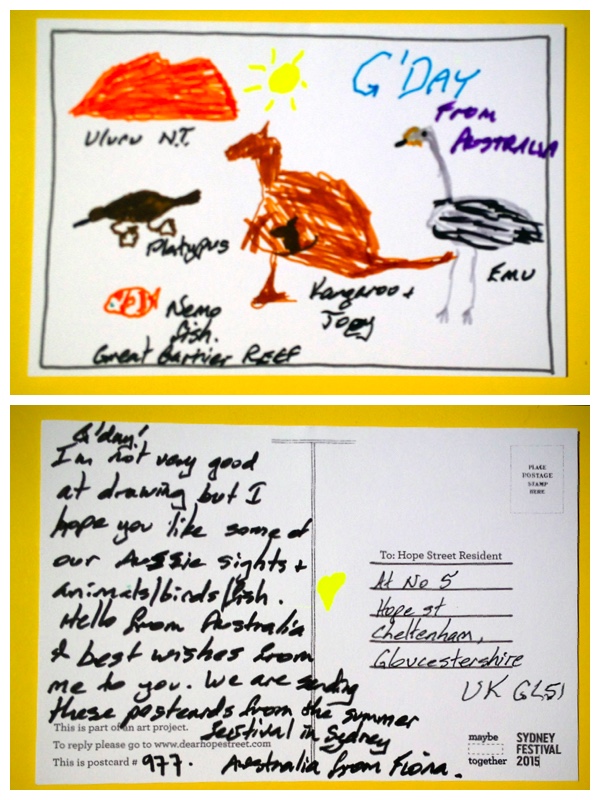 G'DAY
FROM
AUSTRALIA
Uluru N.T.
Platypus
Emu
Kangaroo +
Joey
Nemo
fish.
Great Barrier REEF
G'day!
I'm not very good
at drawing but I
hope you like some of
our Aussie sights +
animals/birds/fish.
Hello from Australia
& best wishes from
me to you. We are sending
these postcards from the summer
festival in Sydney
Australia from Fiona.
This is part of an art project.
To reply please go to www.dearhopestreet.com
This is postcard # 977.
PLACE
POSTAGE
STAMP
HERE
To: Hope Street Resident
At No 5
Hope st
Cheltenham,
Gloucestershire
UK GL51
maybe
together
SYDNEY
FESTIVAL
2015